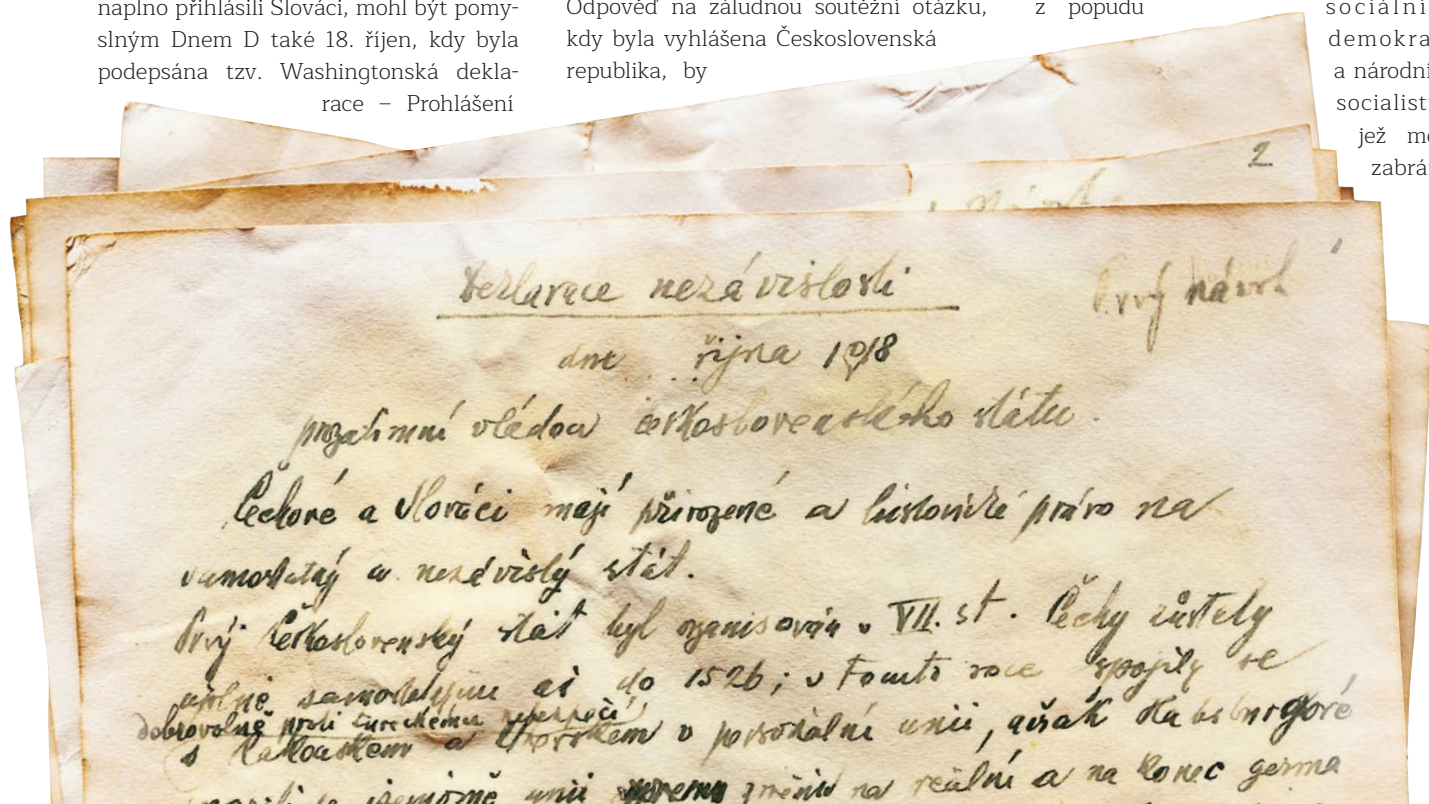 naplno přihlásili Slováci, mohl být pomy-
slným Dnem D také 18. říjen, kdy byla
podepsána tzv. Washingtonská dekla-
race – Prohlášení
Odpověď na záludnou soutěžní otázku,
kdy byla vyhlášena Československá
republika, by
z popudu
sociální
demokra
a národní
socialist
jež
zabrá
2
Deklarace nezávislosti
Prvý návrh
dne října 1918
prozatimní vládou československého státu.
Čechové a Slováci mají přirozené a historické právo na
samostatný a nezávislý stát.
Prvý Československý stát byl organisován v VII. st. Čechy zůstaly
úplně samostatnými až do 1526; v tomto roce spojily se
dobrovolně proti tureckému nebezpečí
s Rakouskem a Uherskem v personální unii, avšak Habsburgové
unii na reální a na konec germa